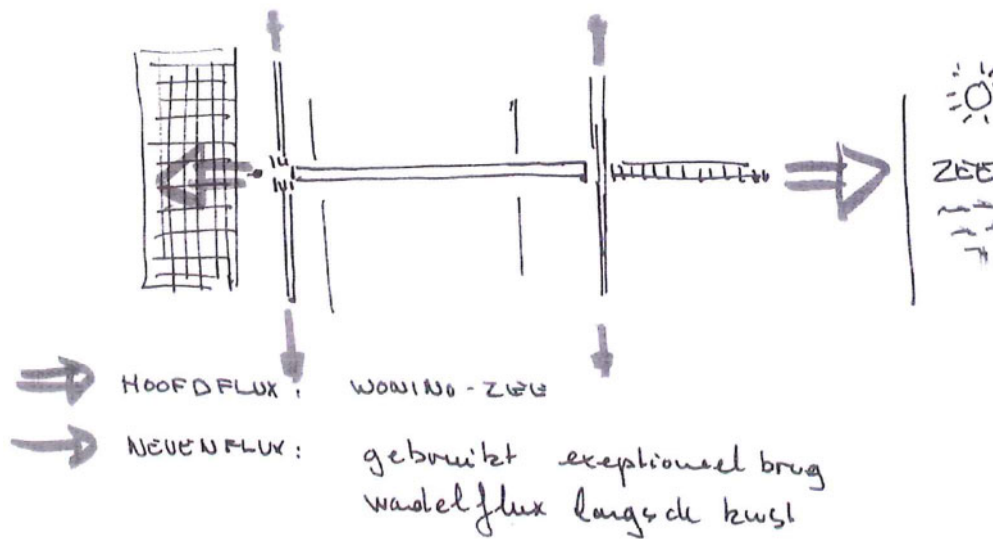 ZEE
HOOFDFLUX: WONING-ZEE
NEVENFLUX: gebruikt exeptioneel brug
wandelflux langs de kust